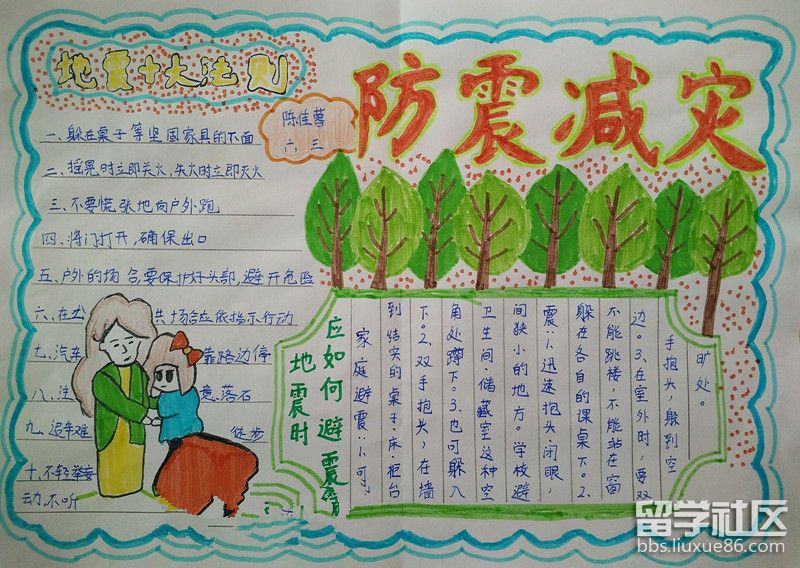 防震减灾
地震十大法则
陈佳
六 三
一、躲在桌子等坚固家具的下面
二、摇晃时立即关火,失火时立即灭火
三、不要慌张地向户外跑
四、将门打开,确保出口
五、户外的场合要保护好头部,避开危险
六、在 共场合应依指示行动
七、汽车 靠路边停
八、注 意、落石
九、避难 徒步
十、不轻举妄
动,不听
地震时
应如何避震
家庭避震:1.可
到结实的桌子、床柜台
下。2.双手抱头,在墙
角处蹲下。3.也可躲入
卫生间、储藏室这种空
间狭小的地方。学校避
震:1.迅速抱头、闭眼,
躲在各自的课桌下。2.
不能跳楼,不能站在窗
边。3.在室外时,要双
手抱头,躲到空
旷处。
留学社区
bbs.liuxue86.com